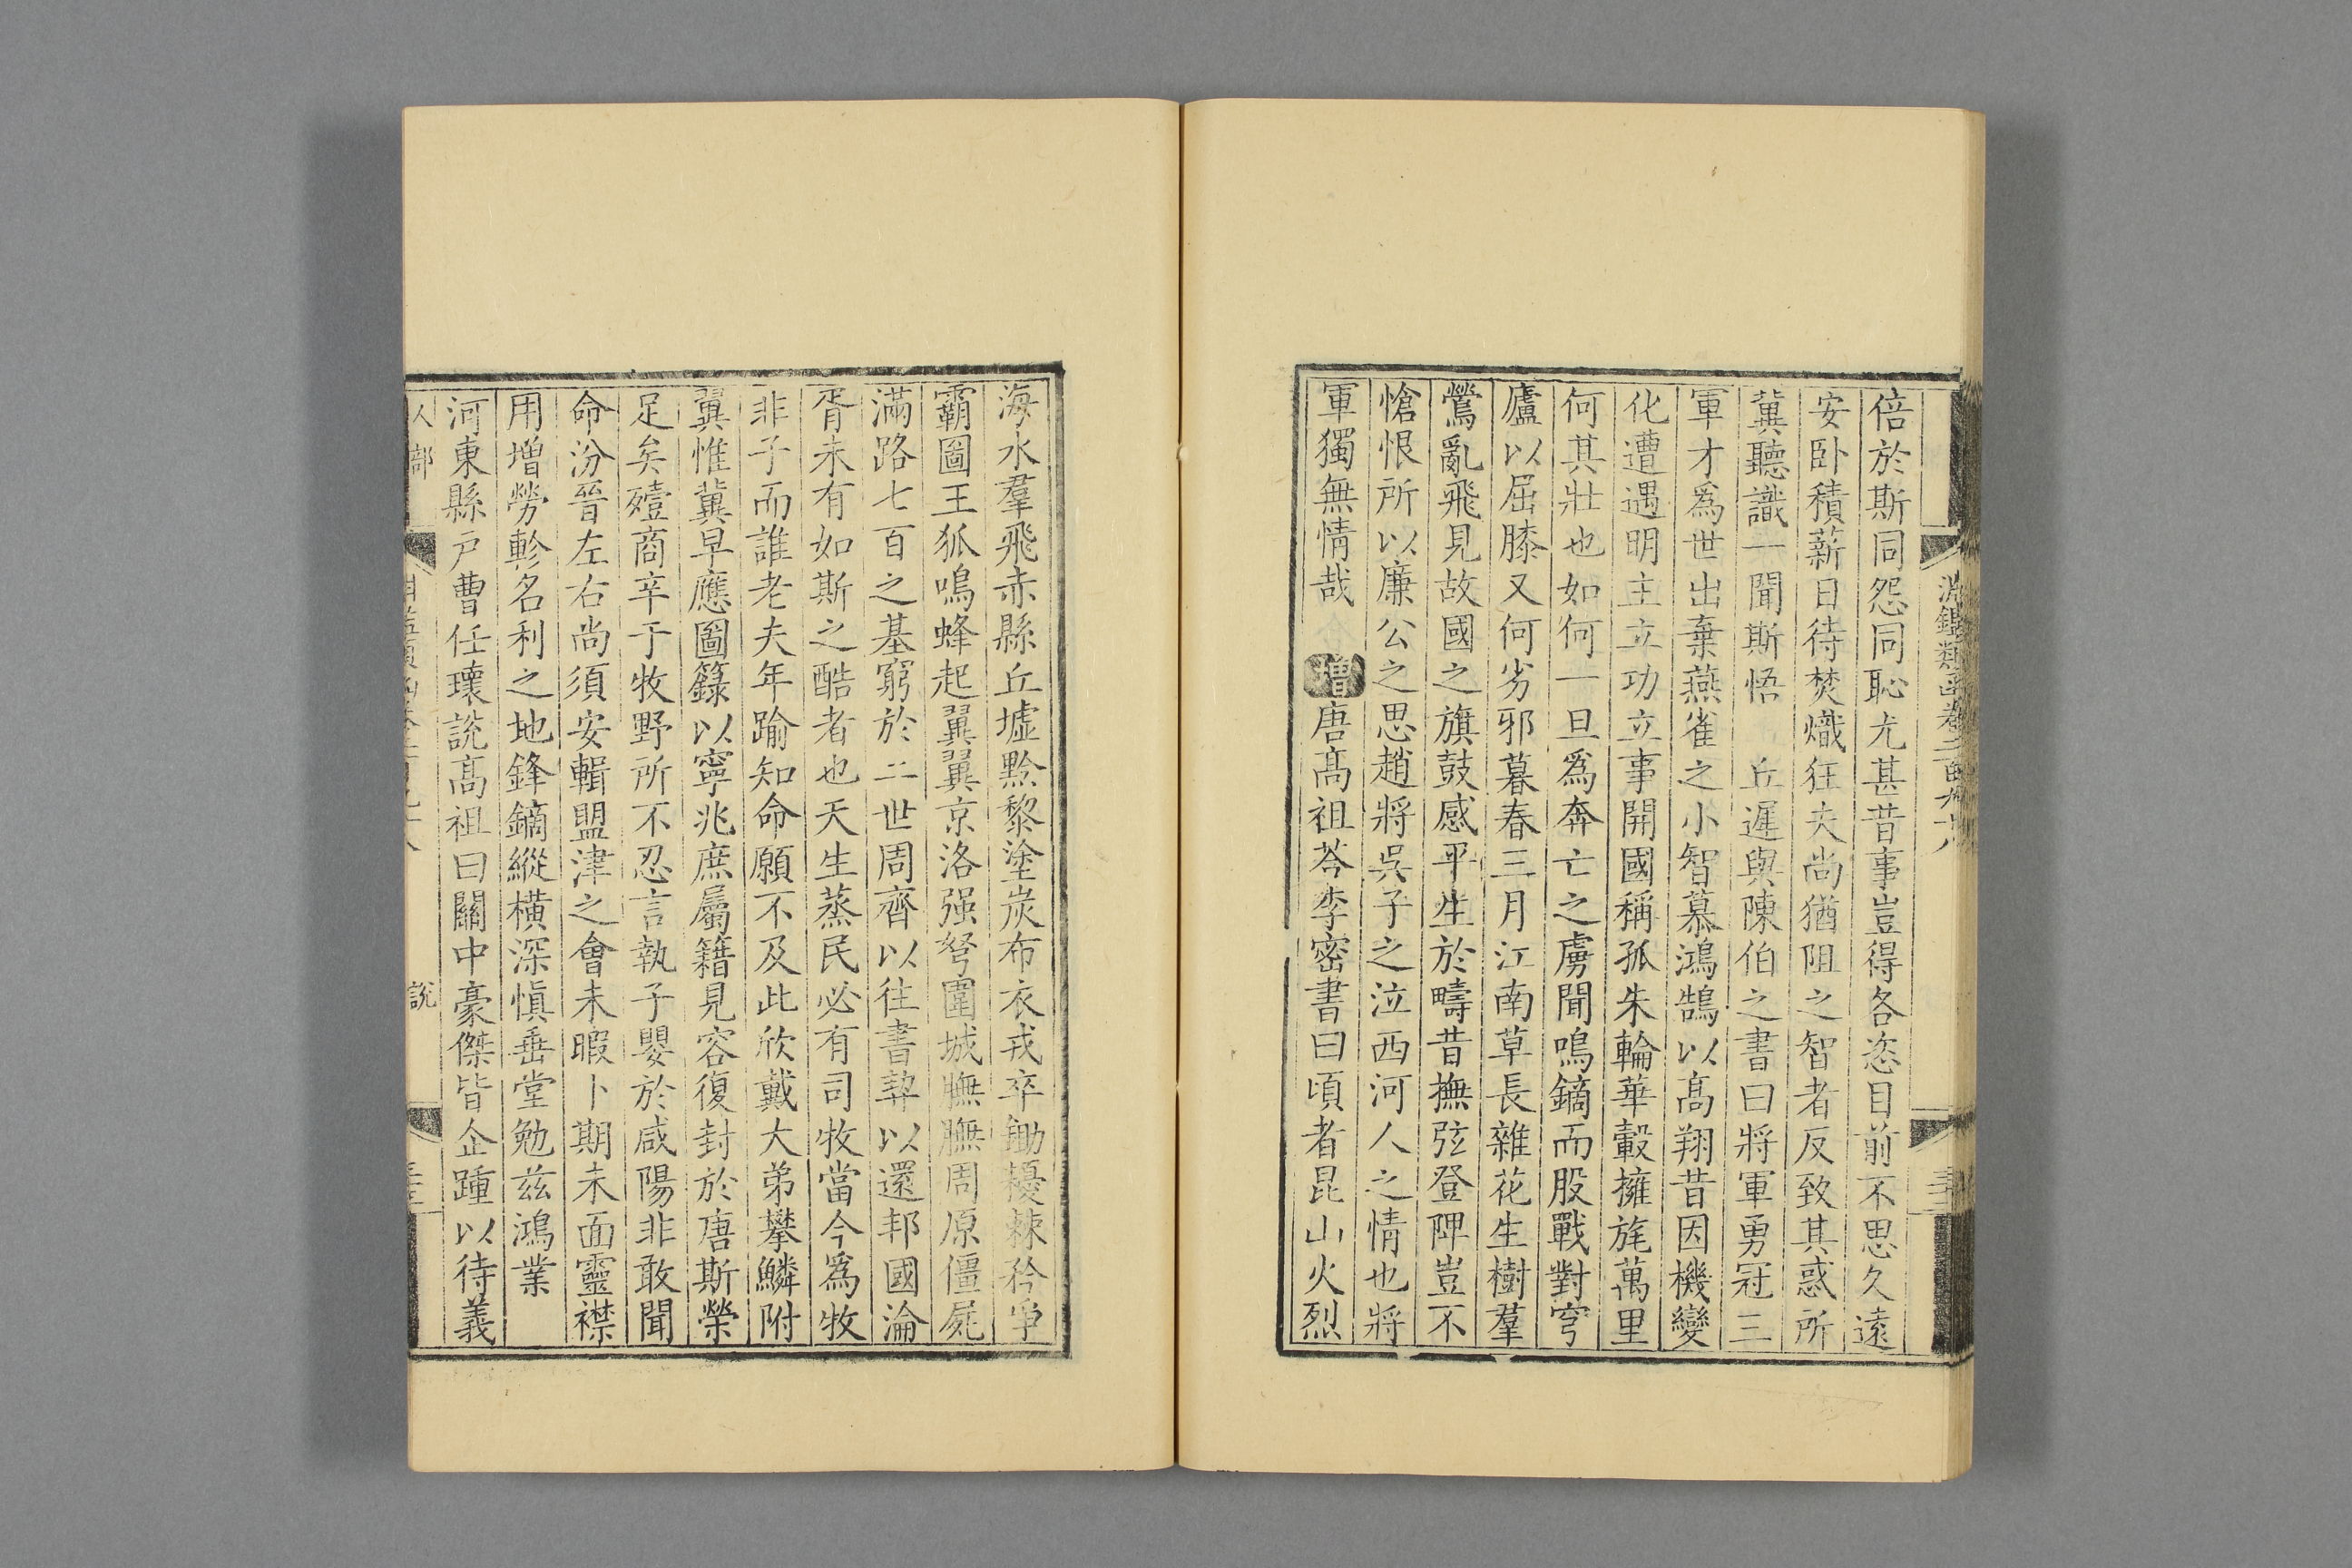 淵鑑類函卷二百九十八
倍於斯同怨同恥尤甚昔事豈得各恣目前不思久遠
安卧積薪日待焚熾狂夫尚猶阻之智者反致其惑所
冀聽識一聞斯悟 丘遲與陳伯之書曰將軍勇冠三
軍才爲世出棄燕雀之小智慕鴻鵠以高翔昔因機變
化遭遇明主立功立事開國稱孤朱輪華轂擁旄萬里
何其壯也如何一旦爲奔亡之虜聞鳴鏑而股戰對穹
廬以屈膝又何劣邪暮春三月江南草長雜花生樹羣
鶯亂飛見故國之旗鼓感平生於疇昔撫弦登陴豈不
愴恨所以廉公之思趙將吳子之泣西河人之情也將
軍獨無情哉 增唐高祖荅李密書曰頃者昆山火烈
海水羣飛赤縣丘墟黔黎塗炭布衣戎卒鋤櫌棘矜爭
霸圖王狐鳴蜂起翼翼京洛强弩圍城膴膴周原僵屍
滿路七百之基窮於二世周齊以往書契以還邦國淪
胥未有如斯之酷者也天生蒸民必有司牧當今爲牧
非子而誰老夫年踰知命願不及此欣戴大弟攀鱗附
翼惟冀早應圖籙以寧兆庶屬籍見容復封於唐斯榮
足矣殪商辛于牧野所不忍言執子嬰於咸陽非敢聞
命汾晉左右尚須安輯盟津之會未暇卜期未面靈襟
用增勞軫名利之地鋒鏑縱橫深愼垂堂勉兹鴻業
河東縣戶曹任瓌說高祖曰關中豪傑皆企踵以待義
人部 說